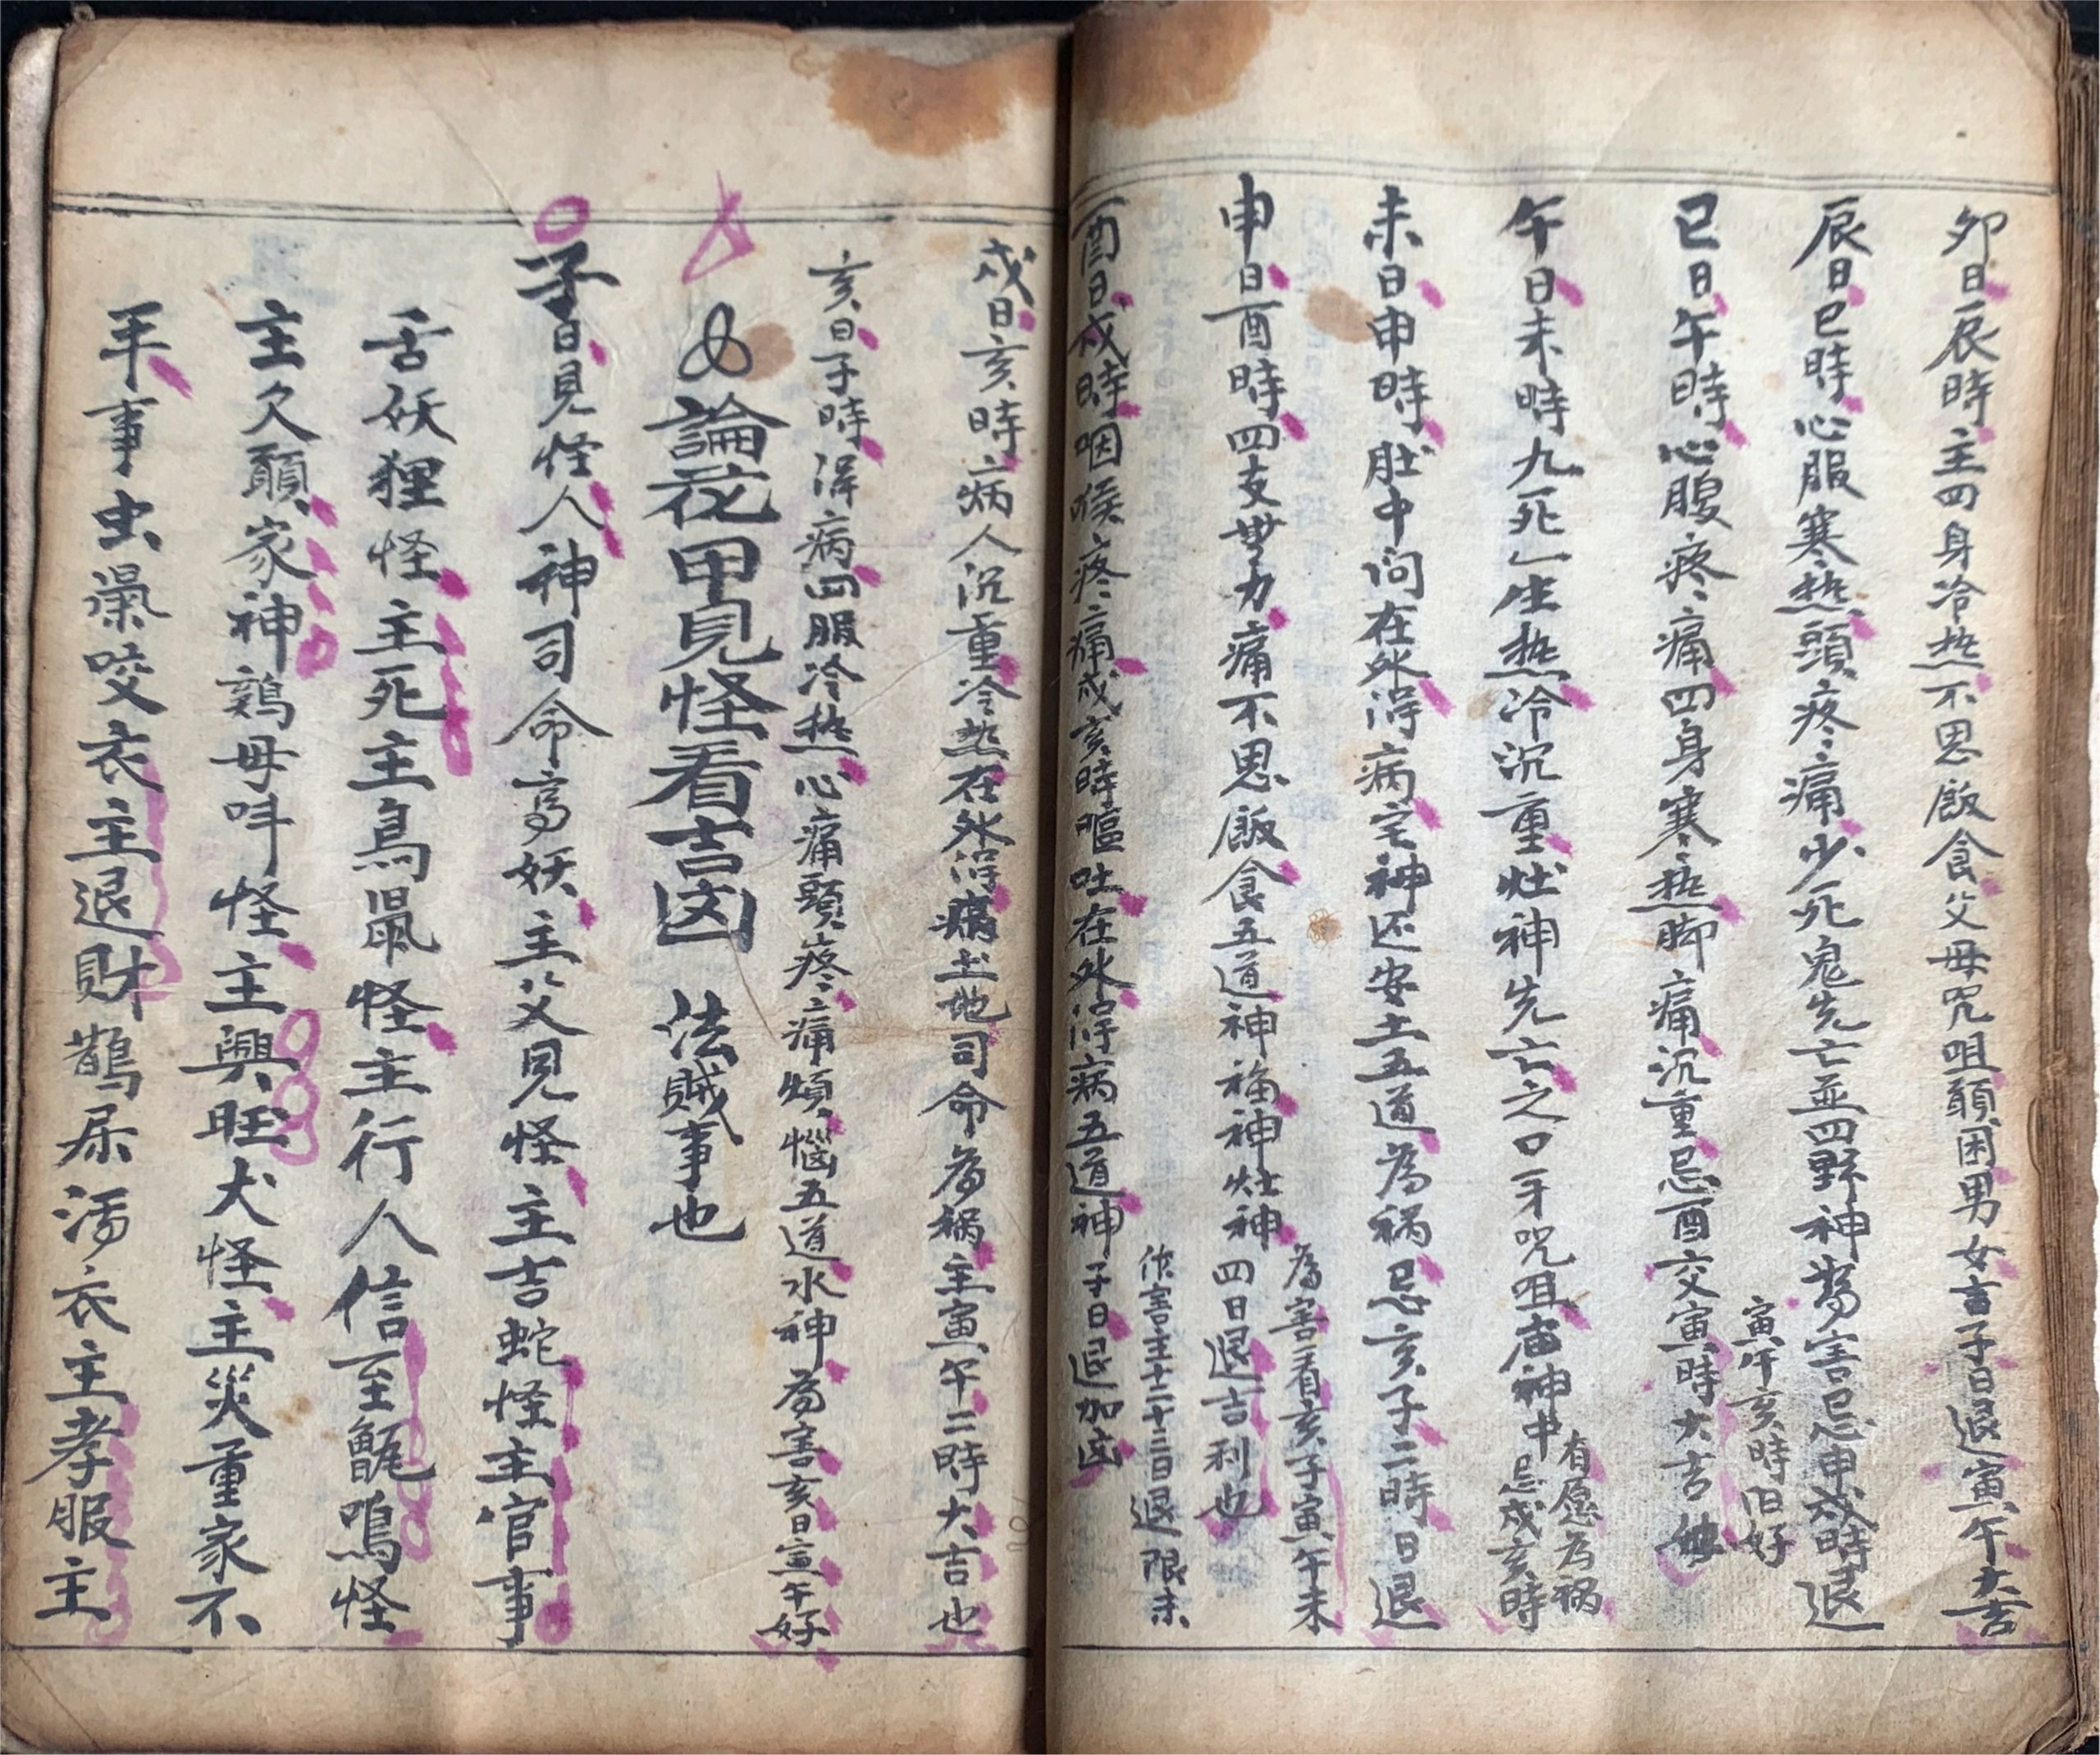 卯日辰時主四身冷热不思飯食父母咒咀願困男女言子日退寅午大吉
辰日巳時心服寒热頭疼痛少死鬼先亡並四野神為害忌申戌時退
寅午亥時旧好
巳日午時心腹疼痛四身寒热脚痛沉重忌酉交寅時大吉
午日未時九死一生热冷沉重灶神先亡之口牙咒咀庙神中有愿为祸忌戌亥時
未日申時肚中问在外得病宅神还安土五道為祸忌亥子二時日退
申日酉時四支無力痛不思飯食五道神福神灶神為害看亥子寅午未四日退吉利也
酉日戌時咽喉疼痛戌亥時嘔吐在外得病五道神作害主十二十三日退限未子日退加凶
戌日亥時病人沉重冷热在外得病土地司命為祸主寅午二時大吉也
亥日子時得病四服冷热心痛頭疼痛煩惱五道水神為害亥日寅午好
論花甲見怪看吉凶 法賊事也
子日見怪人神司命高妖主父見怪主吉蛇怪主官事
舌妖狸怪主死主鳥鼠怪主行人信至甑鳴怪
主欠願家神鷄母呌怪主興旺犬怪主災重家不
平事虫蟻咬衣主退財鵲屎污衣主孝服主